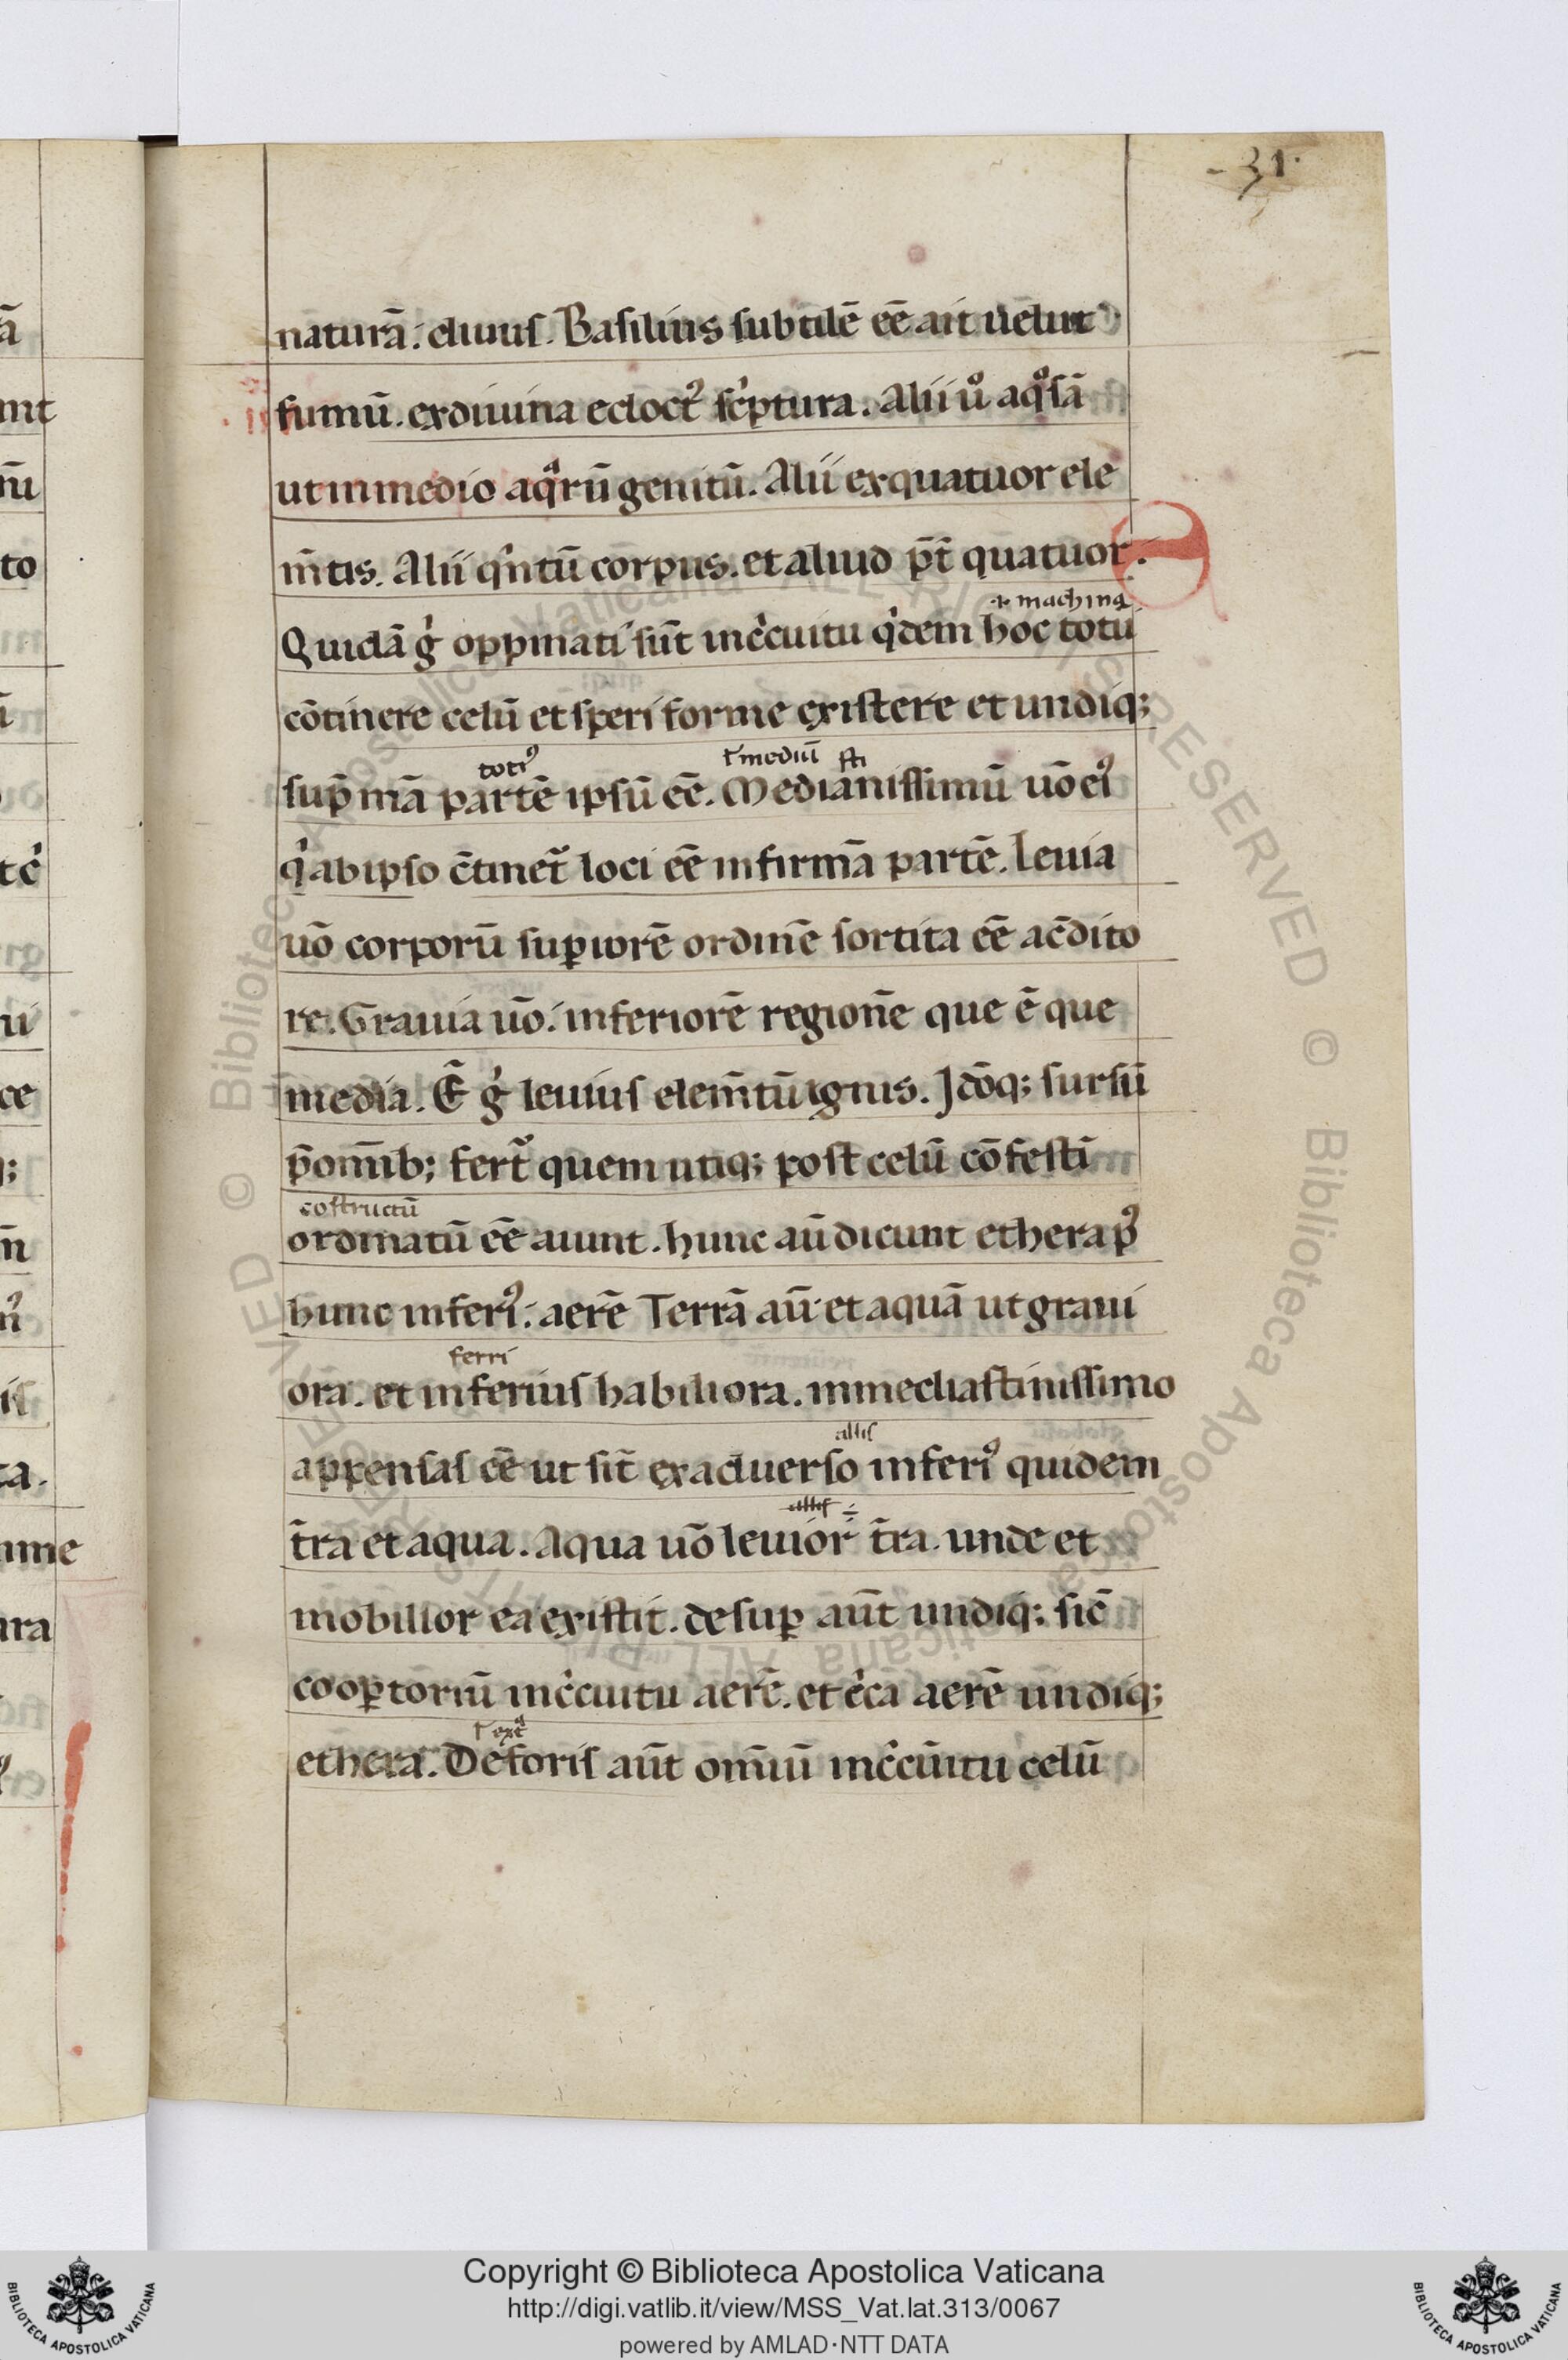 -31.
naturā. diuus. Basilius subtilē eē ait uelut
fumū. ex diuina edoct᾽ sc͛ptura. Alii uͦ aqͦsā
ut in medio aqᷓrū genitū. Alii ex quatuor ele
m̄tis. Alii qͥntū corpus. et aliud p̄t̄ quatuor.
machina
Quidā gͥ oppinati sūt in cͥcuitu qͥdem hoc totū
cōtinere celū et speri forme existere et undiq;
toti᾽ ł mediū sti
sup̄mā partē ipsū eē. Medianissimū uō ei᾽
qͥ ab ipso c̄tinet᷑ loci eē infirmā partē. Leuia
uō corporū suꝑiorē ordinē sortita eē a c̄dito
re. Grauia uō. inferiorē regionē que ē que
media. Ē gͥ leuius elem̄tū ignis. Jdōq; sursū
p̄ om̄ib; fert᷑ quem utiq; post celū cōfestī
cōstructū
ordinatū eē aiunt. hunc aū dicunt ethera p᾽
hunc inferi᾽. aerē Terrā aū et aquā ut graui
ferri
ora. et inferius habiliora. in mediastinissimo
allis
appensas eē ut sīt ex aduerso inferi᾽ quidem
t̄ra et aqua. Aqua uō leuior t̄ra. unde et
mobilior ea existit. desuꝑ aūt undiq; sic̄
cooꝑtoriū in cͥcuitu aerē. et cͥcā aerē undiq;
ł extᷓ
ethera. De foris aūt om̄iū in cͥcuitu celū
Copyright © Biblioteca Apostolica Vaticana
http://digi.vatlib.it/view/MSS_Vat.lat.313/0067
powered by AMLAD·NTT DATA
BIBLIOTECA APOSTOLICA VATICANA
BIBLIOTECA APOSTOLICA VATICANA